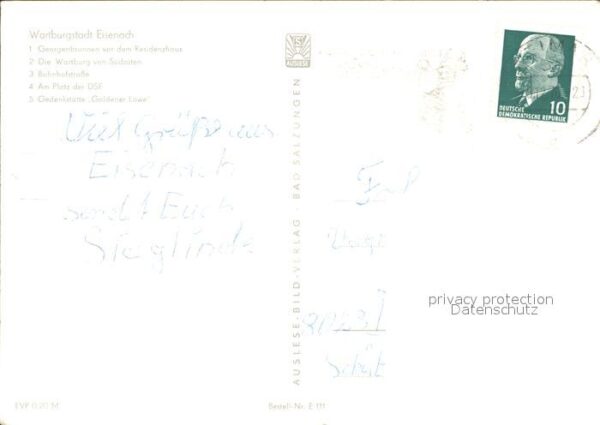 Wartburgstadt Eisenach
1 Georgenbrunnen vor dem Residenzhaus
2 Die Wartburg von Südosten
3 Bahnhofstraße
4 Am Platz der DSF
5 Gedenkstätte „Goldener Löwe"
AUSLESE
DEUTSCHE
DEMOKRATISCHE REPUBLIK
10
Viel Grüße aus
Eisenach
sendet Euch
Sieglinde
AUSLESE-BILD-VERLAG · BAD SALZUNGEN
privacy protection
Datenschutz
EVP 0,20 M
Bestell-Nr. E 111